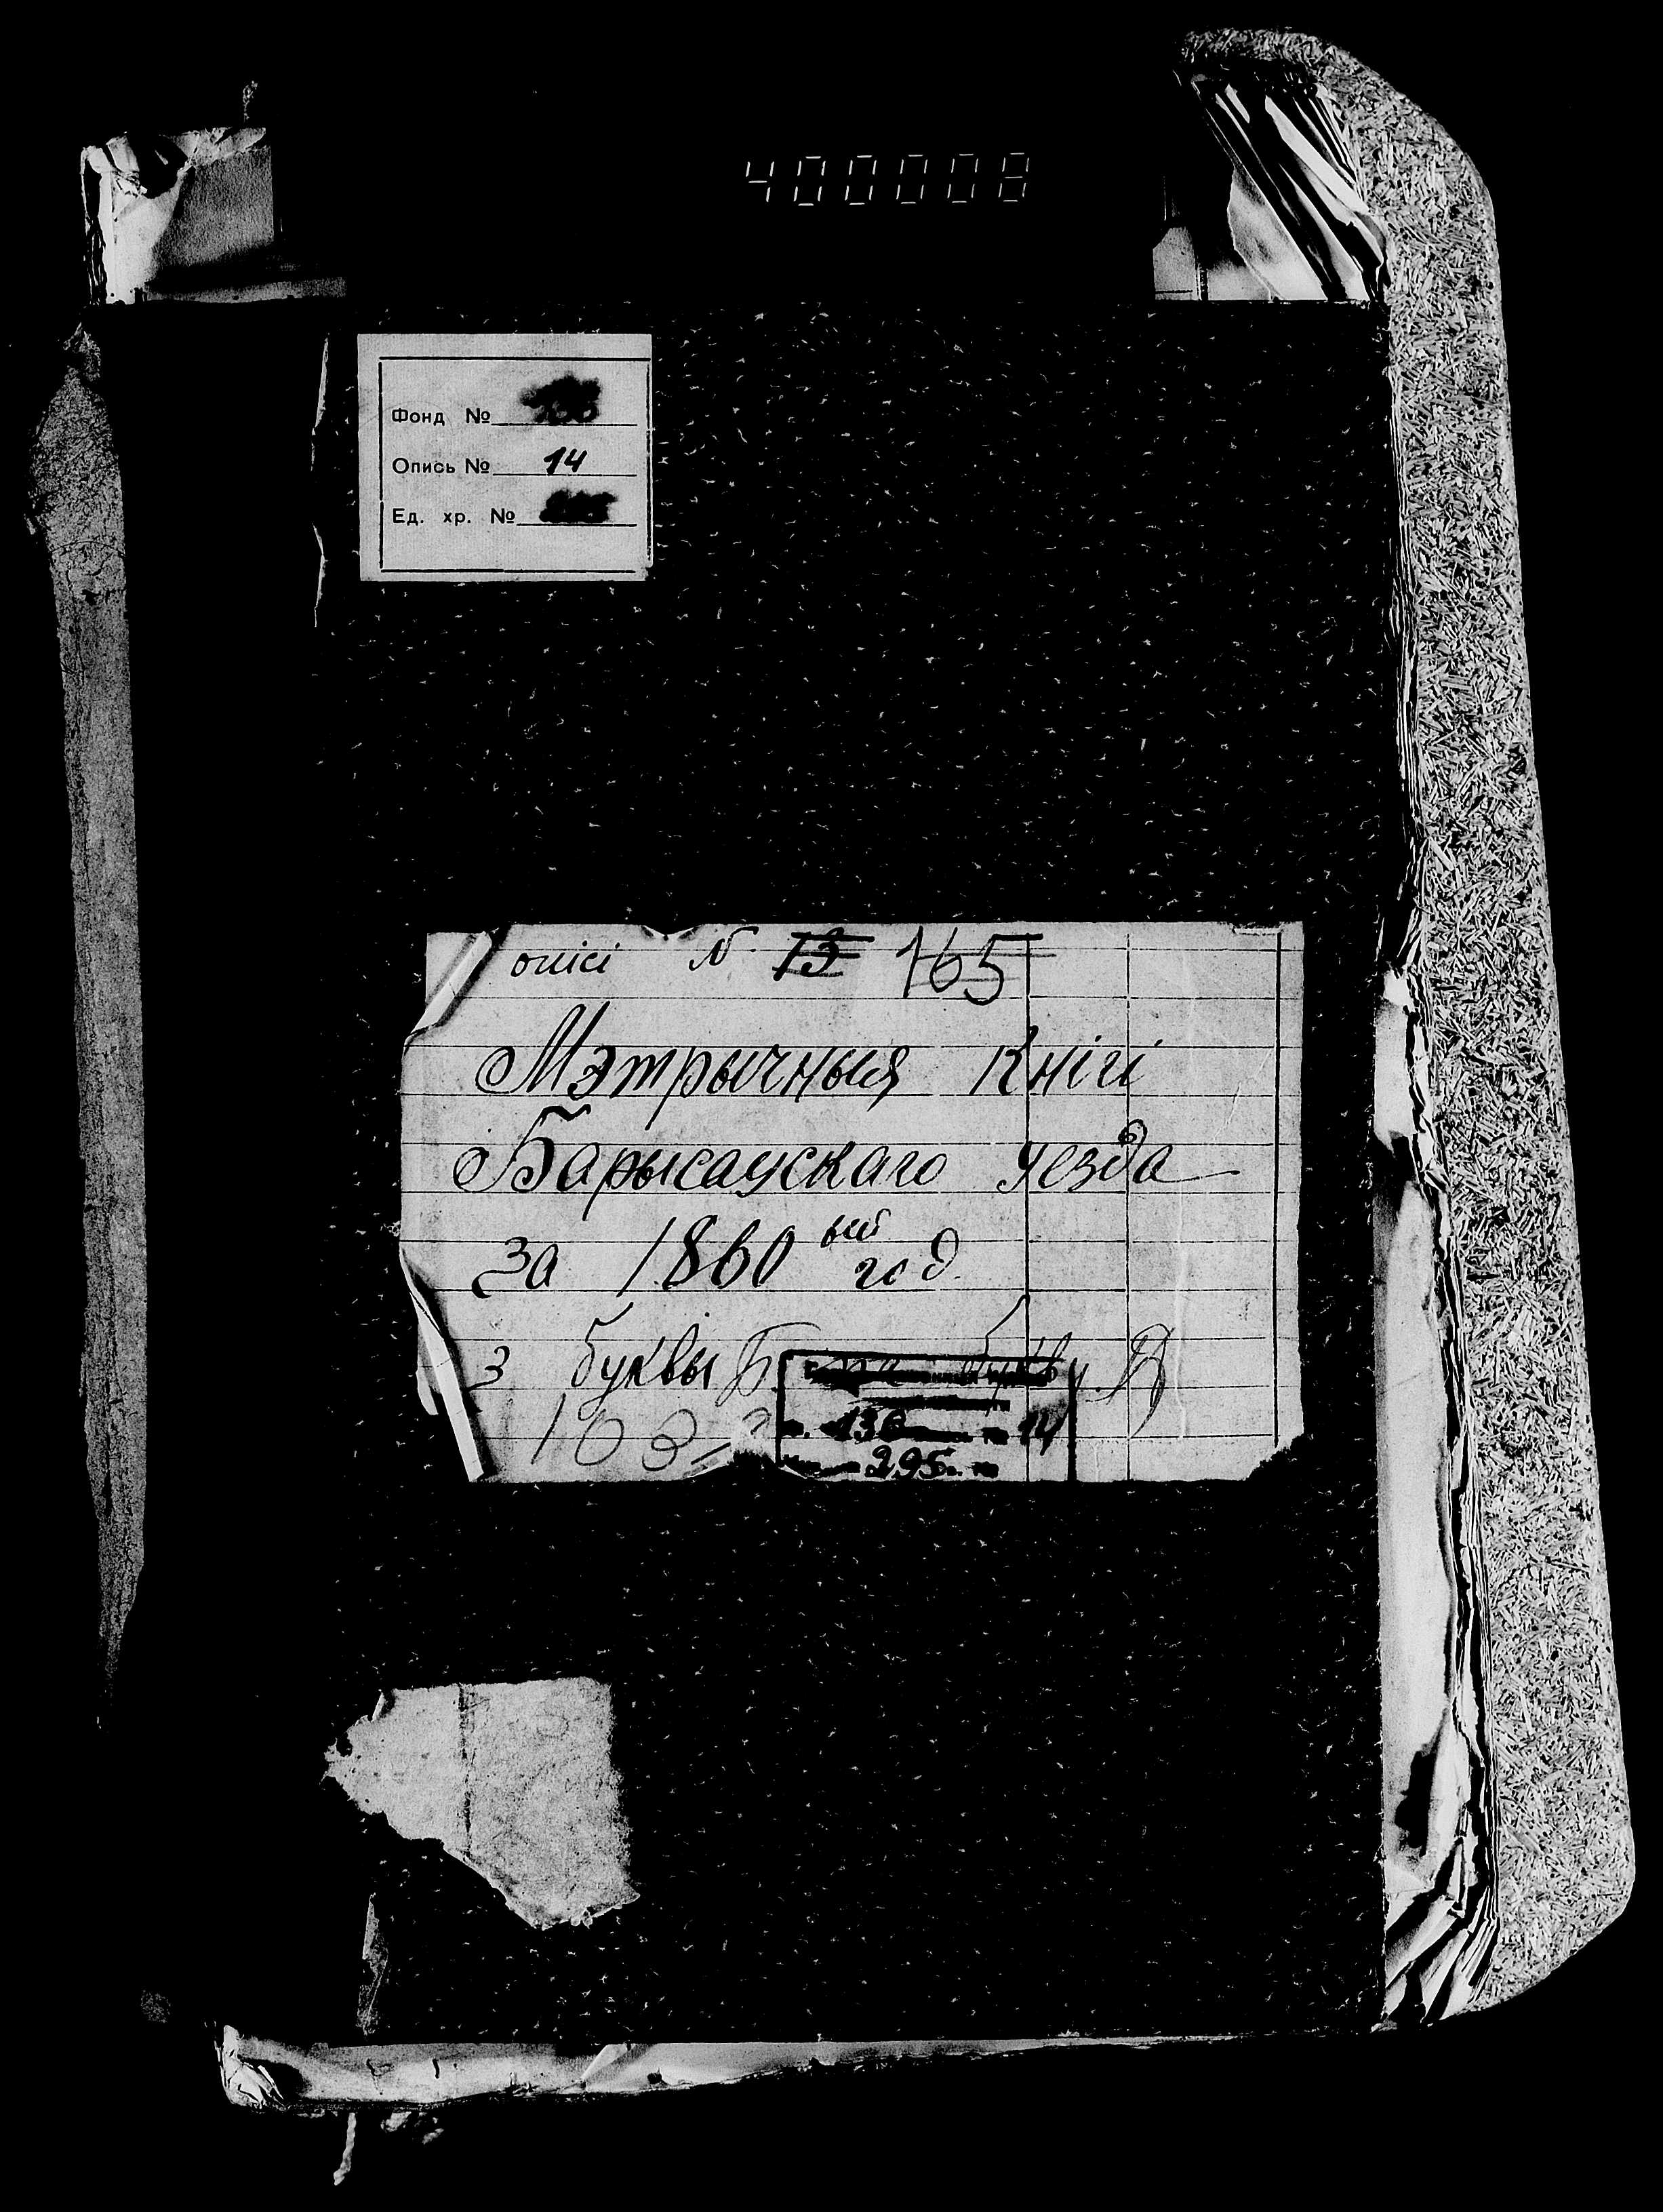 400008
Фонд №
Опись № 14
Ед. хр. №
опісі № 13 165
Мэтрычныя Кнігі
Барысаускаго уезда
за 1860 ый год
з буквы Б. на букву Д
103
136 14
295